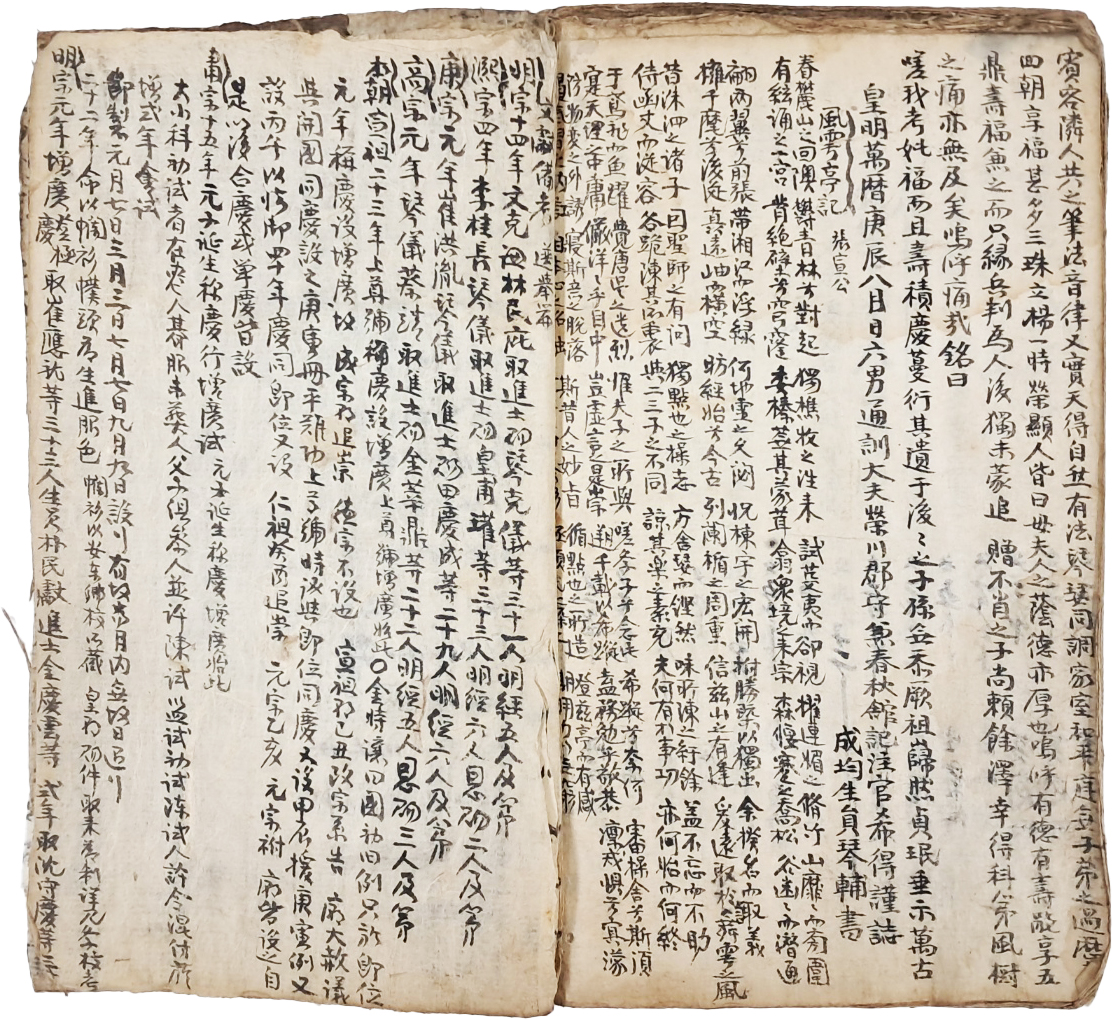 賓客隣人共之筆法音律又實天得自然有法琴瑟同調家室和平庭無子弟之過歷
四朝享福甚多三珠立楊一時榮顯人皆曰母夫人之蔭德亦厚也嗚呼有德有壽能享五
鼎壽福兼之而只緣兵判爲人後獨未蒙追 贈不肖之子尚賴餘澤幸得科第風樹
之痛亦無及矣嗚呼痛哉 銘曰
嗟我考妣福而且壽積慶蔓衍其遺于後〻之子孫無忝厥祖歸然貞珉垂示萬古
皇明萬曆庚辰八月日六男通訓大夫榮川郡守兼春秋館記注官希得謹誌
成均生員琴輔書
風雩亭記 張宣公
眷麓山之回隩 鬱青林兮對起 獨樵牧之往来 試芟夷而卻視 擢連娟之脩竹 山靡〻而旁圍
有絃誦之一宮 背絶壁兮穹窿 委榛莽其蒙茸 翕衆境之来宗 森偃蹇之喬松 谷幽〻而潛通
翩兩翼兮前張 帶湘江而浮緑 何地靈之久閟 況棟宇之宏開 拊勝槩以獨出 余揆名而取義
擁千麾兮後從 真遠岫而橫空 昉經始兮今古 列闌楯之周重 信兹山之有逢 爰遠取於舞雩之風
昔洙泗之諸子 因聖師之有問 獨點也之操志 方舍瑟而鏗然 味所陳之紆餘 盖不忘而不助
侍函丈而從容 各跪陳其所衷 與二三子之不同 諒其樂之素充 夫何有於事功 亦何怠而何終
于鳶飛而魚躍 費唐虞之遺烈 惟夫子之所與 嗟學子兮念此 希蹤兮奈何 審操舍兮斯須
寔天理之中庸 儼洋〻乎目中 豈虚言之是崇 遡千載以希蹤 盍務勉乎敬恭 凛戒懼兮冥濛
防物變之外誘 寢斯意之脫落 斯昔人之妙旨 循點也之所造 登兹亭而有感
文獻備考 選擧篇
明宗十四年文克廸林民庇取進士 賜琴克儀等三十一人明經五人及第
熙宗四年李桂長琴儀取進士 賜皇甫瓘等三十三人明經六人恩賜二人及第
康宗元年崔洪胤琴儀取進士 賜田慶成等二十九人明經六人及第
高宗元年琴儀蔡靖取進士 賜金莘鼎等二十二人明經五人恩賜三人及第
本朝宣祖二十三年上尊號稱慶設增廣 上尊號增廣始此〇金時讓曰國初旧例只於卽位
元年稱慶設增廣故 成宗朝追崇 德宗不設也 宣祖朝己丑改宗系告 廟大赦議
與開國同慶設之庚寅冊平難功上尊號時議與卽位同慶又設甲辰援庚寅例又
設丙午以 臨御四十年慶同卽位又設 仁祖癸酉追崇 元宗乙亥 元宗祔 廟皆設之自
是以後合慶或單慶皆設
肅宗十五年元子誕生稱慶行增廣試 元子誕生稱慶增廣始此
大小科初試者在喪人朞服未葬人父子俱參人並許陳試 監試初試陳試人許令混付於
增式年會試
節製 元月七日三月三日七月七日九月九日設行 有故者月内無故日退行
二十二年命以幱衫幞頭爲生進服色 幱衫以安東鄕校所藏 皇朝賜件取来爲制
明宗元年增廣登極慶 取崔應龍等三十三人生員朴民獻進士金慶雲等 式年取沈守慶等三